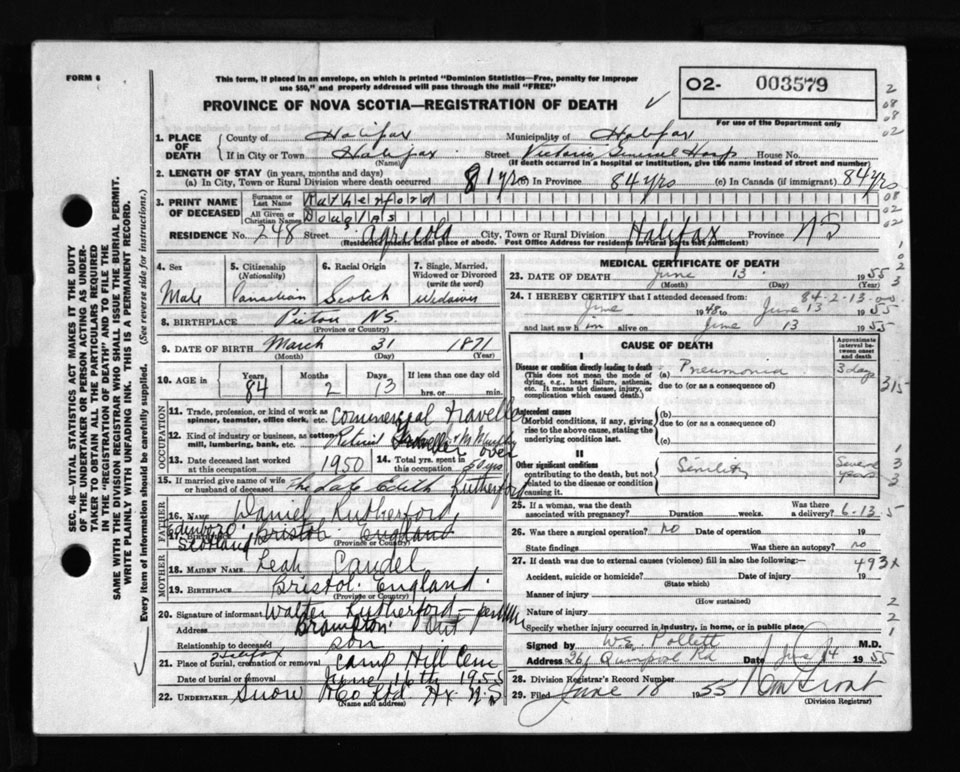 FORM 6
This form, if placed in an envelope, on which is printed "Dominion Statistics—Free, penalty for improper
use $50," and properly addressed will pass through the mail "FREE"
PROVINCE OF NOVA SCOTIA—REGISTRATION OF DEATH
O2- 003579
For use of the Department only
1. PLACE OF DEATH
County of Halifax Municipality of Halifax
If in City or Town Halifax Street Victoria General Hosp House No.
(Name) (If death occurred in a hospital or institution, give the name instead of street and number)
2. LENGTH OF STAY (in years, months and days)
(a) In City, Town or Rural Division where death occurred 81 yrs (b) In Province 84 yrs (c) In Canada (if immigrant) 84 yrs
3. PRINT NAME OF DECEASED
Surname or Last Name Rutherford
All Given or Christian Names Douglas
RESIDENCE No. 248 Street Agricola City, Town or Rural Division Halifax Province NS
(Residence means usual place of abode. Post Office Address for residents in rural parts not sufficient)
4. Sex Male
5. Citizenship (Nationality) Canadian
6. Racial Origin Scotch
7. Single, Married, Widowed or Divorced (write the word) Widower
8. BIRTHPLACE Pictou N.S.
(Province or Country)
9. DATE OF BIRTH March 31 1871
(Month) (Day) (Year)
10. AGE in Years 84 Months 2 Days 13 If less than one day old hrs. or min.
OCCUPATION
11. Trade, profession, or kind of work as spinner, teamster, office clerk, etc. Commercial traveller
12. Kind of industry or business, as cotton mill, lumbering, bank, etc. Retired
13. Date deceased last worked at this occupation 1950
14. Total yrs. spent in this occupation over 60 yrs
15. If married give name of wife or husband of deceased the late Edith Rutherford
FATHER
16. Name Daniel Rutherford
Scotland
17. BIRTHPLACE Bristol England
(Province or Country)
MOTHER
18. MAIDEN NAME Leah Caudel
19. BIRTHPLACE Bristol England
(Province or Country)
20. Signature of informant Walter Rutherford
Address Brampton Ont
Relationship to deceased son
Halifax
21. Place of burial, cremation or removal Camp Hill Cem
Date of burial or removal June 16th 1955
22. UNDERTAKER Snow & Co Ltd Hx N.S
(Name and address)
MEDICAL CERTIFICATE OF DEATH
23. DATE OF DEATH June 13 1955
(Month) (Day) (Year)
84-2-13-00
24. I HEREBY CERTIFY that I attended deceased from:
June 1948 to June 13 1955
and last saw him alive on June 13 1955
CAUSE OF DEATH
Approximate interval between onset and death
I
Disease or condition directly leading to death
(This does not mean the mode of dying, e.g., heart failure, asthenia, etc. It means the disease, injury, or complication which caused death.)
(a) Pneumonia 3 days
due to (or as a consequence of)
315
Antecedent causes
Morbid conditions, if any, giving rise to the above cause, stating the underlying condition last.
(b)
due to (or as a consequence of)
(c)
II
Other significant conditions contributing to the death, but not related to the disease or condition causing it.
Senility Several years
25. If a woman, was the death associated with pregnancy? Duration weeks. Was there a delivery?
6-13-5
26. Was there a surgical operation? no Date of operation 19
State findings Was there an autopsy? no
27. If death was due to external causes (violence) fill in also the following: 493x
Accident, suicide or homicide? Date of injury 19
(State which)
Manner of injury
(How sustained)
Nature of injury
Specify whether injury occurred in industry, in home, or in public place
Signed by W.E. Pollett M.D.
Address 261 Quinpool Rd Date June 14 1955
28. Division Registrar's Record Number
29. Filed June 18 1955
(Division Registrar)
SEC. 46—VITAL STATISTICS ACT MAKES IT THE DUTY
OF THE UNDERTAKER OR PERSON ACTING AS UNDERTAKER
TO OBTAIN ALL THE PARTICULARS REQUIRED
IN THE "REGISTRATION OF DEATH" AND TO FILE THE
SAME WITH THE DIVISION REGISTRAR WHO SHALL ISSUE THE BURIAL PERMIT.
WRITE PLAINLY WITH UNFADING INK. THIS IS A PERMANENT RECORD.
Every item of information should be carefully supplied. (See reverse side for instructions.)